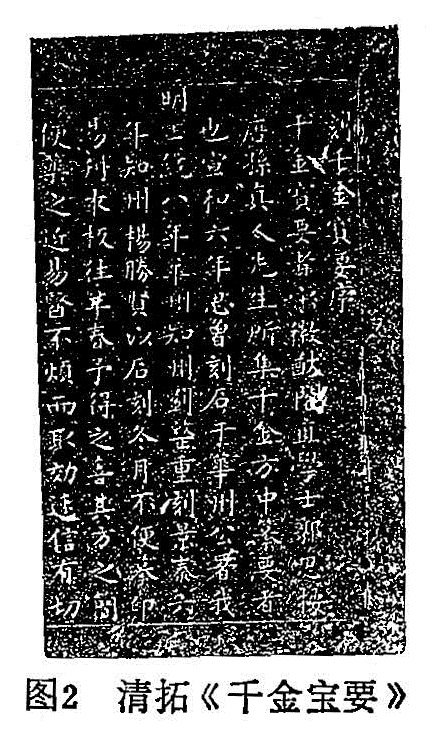 刻千金寳要序
千金寳要者宋徽猷閣直學士郭思按
唐孫真人先生所集千金方中纂要者
也宣和六年思曾刻石于華州公署我
明正統八年華州知州劉整重刻景泰六
年知州楊勝賢以石刻冬月不便摹印
易刊木板往年春予得之喜其方之簡
便藥之近易醫不煩而取効速信有切
图2 清拓《千金宝要》